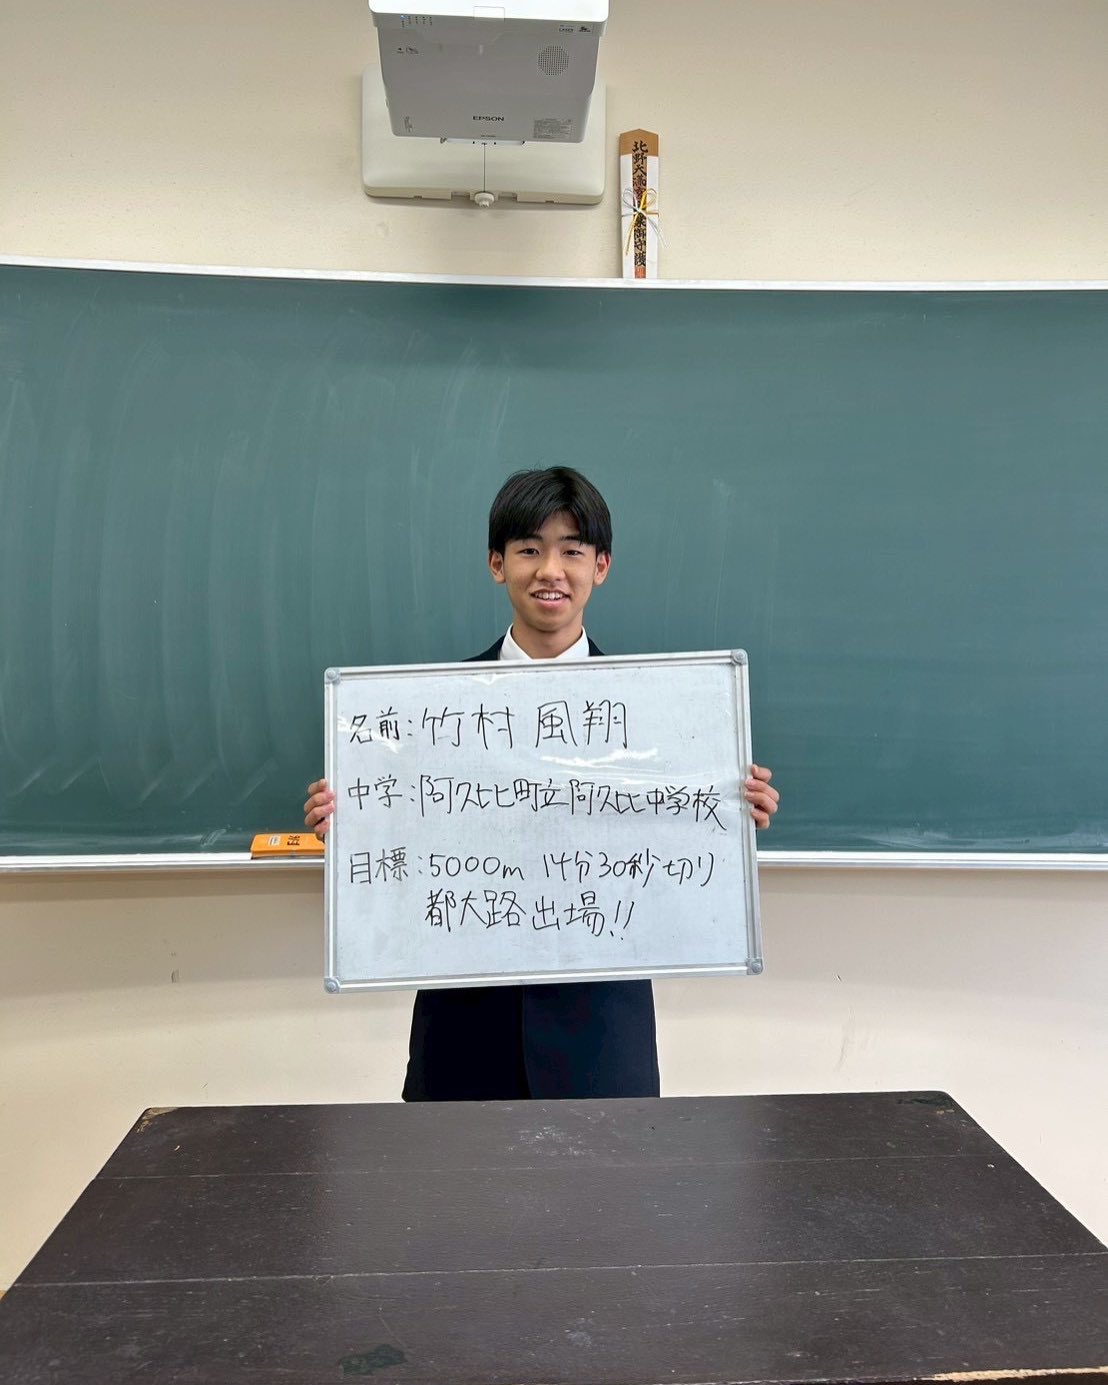 EPSON
北野天満宮
御守護
名前:竹村 風翔
中学:阿久比町立阿久比中学校
目標:5000m 14分30秒切り
都大路出場!!